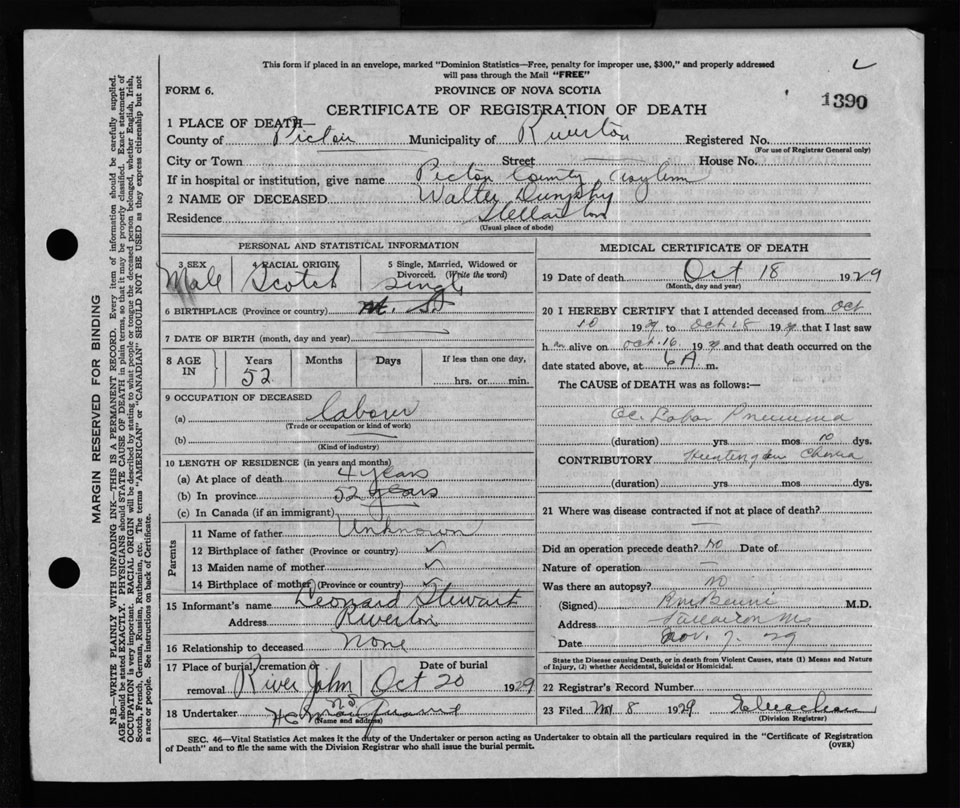 This form if placed in an envelope, marked "Dominion Statistics—Free, penalty for improper use, $300," and properly addressed
will pass through the Mail "FREE"
FORM 6.
PROVINCE OF NOVA SCOTIA
1390
CERTIFICATE OF REGISTRATION OF DEATH
1 PLACE OF DEATH—
County of Pictou Municipality of Riverton Registered No.
(For use of Registrar General only)
City or Town Street House No.
If in hospital or institution, give name Pictou County Asylum
2 NAME OF DECEASED Walter Dunphy
Residence Stellarton
(Usual place of abode)
PERSONAL AND STATISTICAL INFORMATION
3 SEX 4 RACIAL ORIGIN 5 Single, Married, Widowed or
Divorced. (Write the word)
Male Scotch Single
6 BIRTHPLACE (Province or country)
7 DATE OF BIRTH (month, day and year)
8 AGE IN Years Months Days If less than one day,
52 hrs. or min.
9 OCCUPATION OF DECEASED
(a) labourer
(Trade or occupation or kind of work)
(b)
(Kind of industry)
10 LENGTH OF RESIDENCE (in years and months)
(a) At place of death 4 years
(b) In province 52 years
(c) In Canada (if an immigrant)
Parents
11 Name of father Unknown
12 Birthplace of father (Province or country) ✓
13 Maiden name of mother ✓
14 Birthplace of mother (Province or country) ✓
15 Informant's name Leonard Stewart
Address Riverton
16 Relationship to deceased None
17 Place of burial, cremation or Date of burial
removal River John Oct 20 1929
N S
18 Undertaker
(Name and address)
MEDICAL CERTIFICATE OF DEATH
19 Date of death Oct 18 1929
(Month, day and year)
20 I HEREBY CERTIFY that I attended deceased from Oct
10 1929 to Oct 18 1929 that I last saw
h im alive on Oct. 16 1929 and that death occurred on the
date stated above, at 6 A m.
The CAUSE of DEATH was as follows:—
Ac. Lobar Pneumonia
(duration) yrs mos 10 dys.
CONTRIBUTORY Huntingdon Chorea
(duration) yrs mos dys.
21 Where was disease contracted if not at place of death?
Did an operation precede death? No Date of
Nature of operation —
Was there an autopsy? No
(Signed) M.D.
Address
Date Nov. 7. 29
State the Disease causing Death, or in death from Violent Causes, state (1) Means and Nature
of Injury, (2) whether Accidental, Suicidal or Homicidal.
22 Registrar's Record Number
23 Filed Nov 8 1929
(Division Registrar)
SEC. 46—Vital Statistics Act makes it the duty of the Undertaker or person acting as Undertaker to obtain all the particulars required in the "Certificate of Registration
of Death" and to file the same with the Division Registrar who shall issue the burial permit.
(OVER)
MARGIN RESERVED FOR BINDING
N.B.—WRITE PLAINLY WITH UNFADING INK—THIS IS A PERMANENT RECORD. Every item of information should be carefully supplied.
AGE should be stated EXACTLY. PHYSICIANS should STATE CAUSE OF DEATH in plain terms, so that it may be properly classified. Exact statement of
OCCUPATION is very important. RACIAL ORIGIN will be described by stating to what people or tongue the deceased person belonged, whether English, Irish,
Scotch, French, German, Russian, Ruthenian, etc. The terms "AMERICAN" or "CANADIAN" SHOULD NOT BE USED as they express citizenship but not
a race or people. See instructions on back of Certificate.